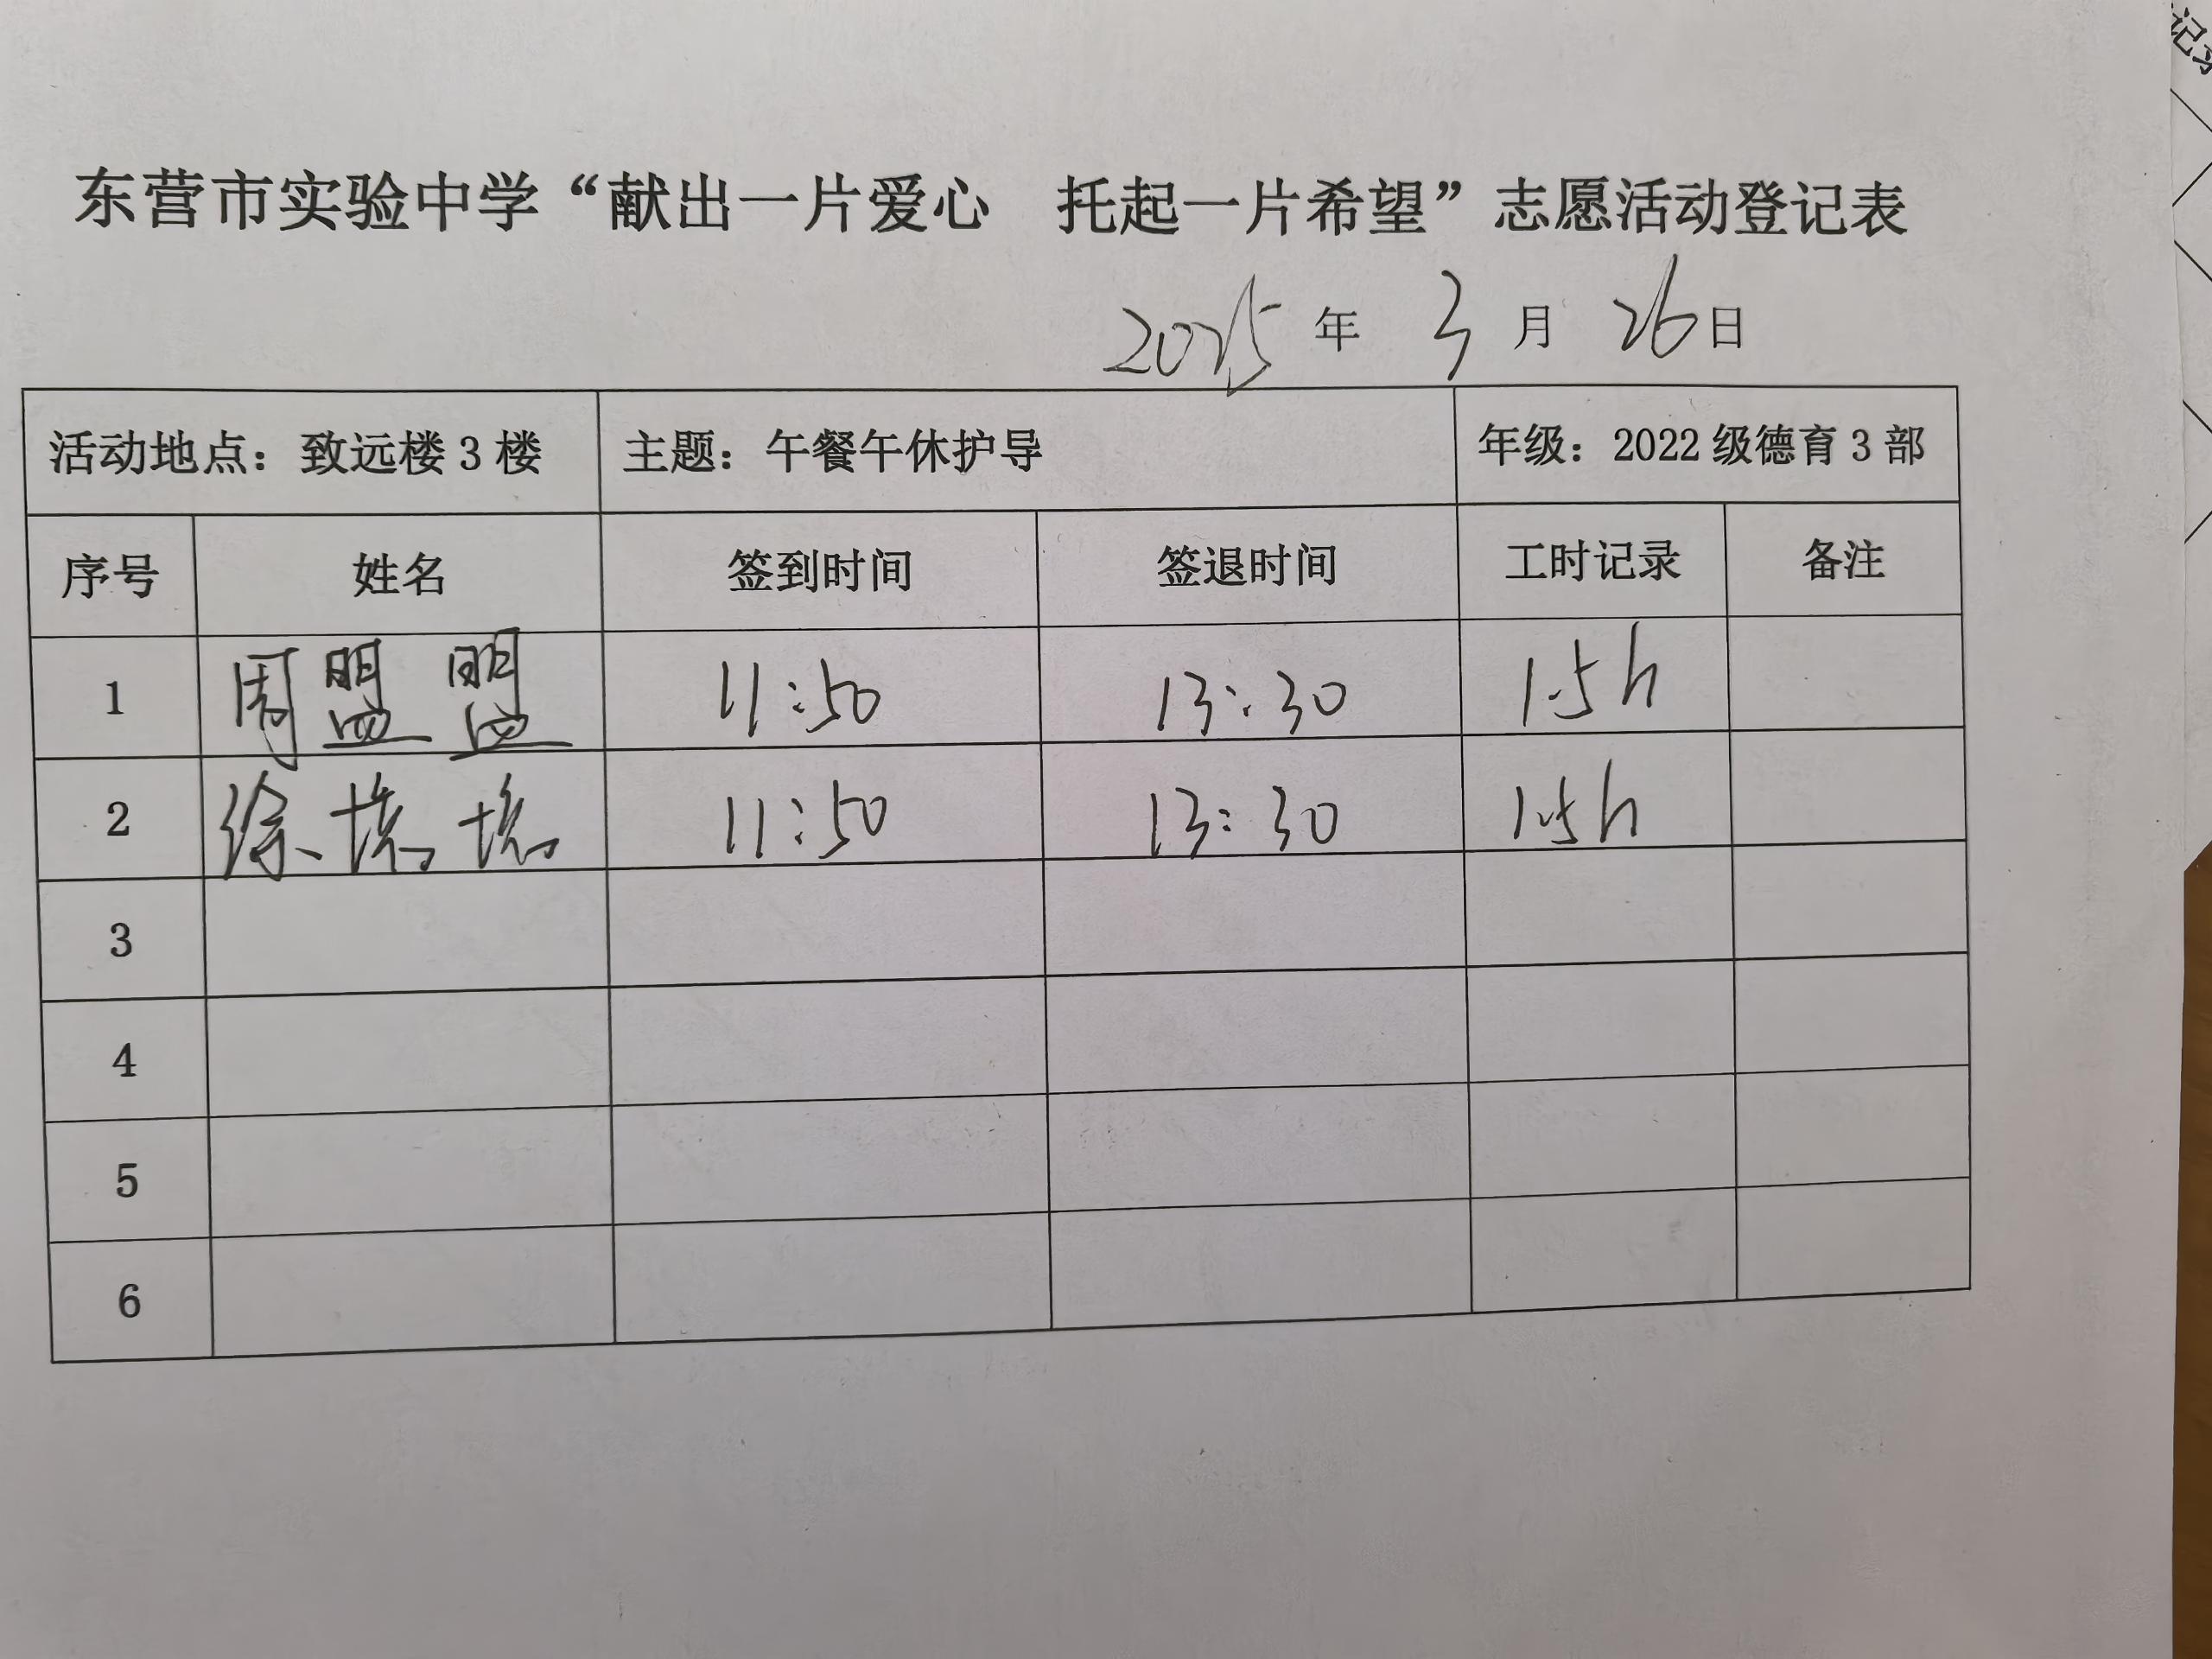 东营市实验中学“献出一片爱心 托起一片希望”志愿活动登记表
2025年 3月 26日
活动地点：致远楼3楼 主题：午餐午休护导 年级：2022级德育3部
序号 姓名 签到时间 签退时间 工时记录 备注
1 周盟盟 11:50 13:30 1.5h
2 徐 11:50 13:30 1.5h
3
4
5
6
记录